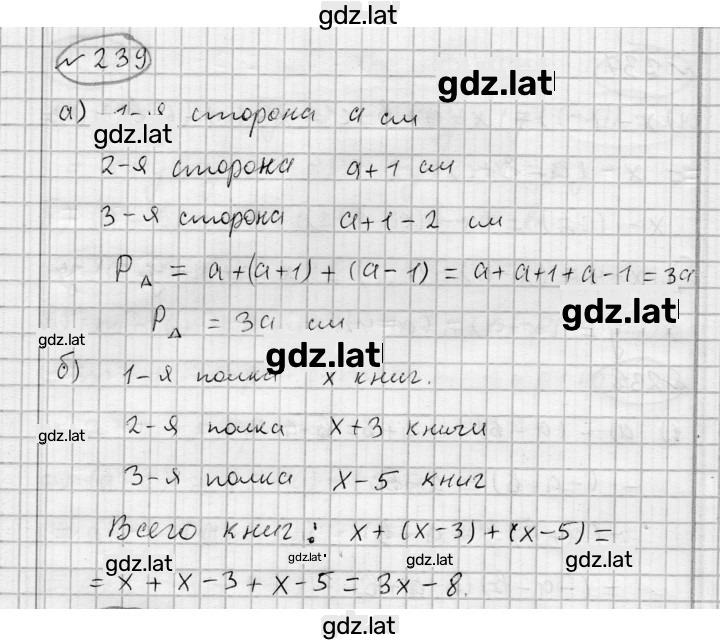 gdz.lat
№ 239
gdz.lat
а) 1-я сторона a см
gdz.lat
2-я сторона a+1 см
3-я сторона a+1-2 см
P△ = a+(a+1)+(a-1) = a+a+1+a-1 = 3a
gdz.lat
P△ = 3a см
gdz.lat
gdz.lat
б) 1-я полка x книг.
2-я полка x+3 книги
gdz.lat
3-я полка x-5 книг
Всего книг: x+(x-3)+(x-5) =
gdz.lat gdz.lat gdz.lat gdz.lat
= x+x-3+x-5 = 3x-8.
gdz.lat